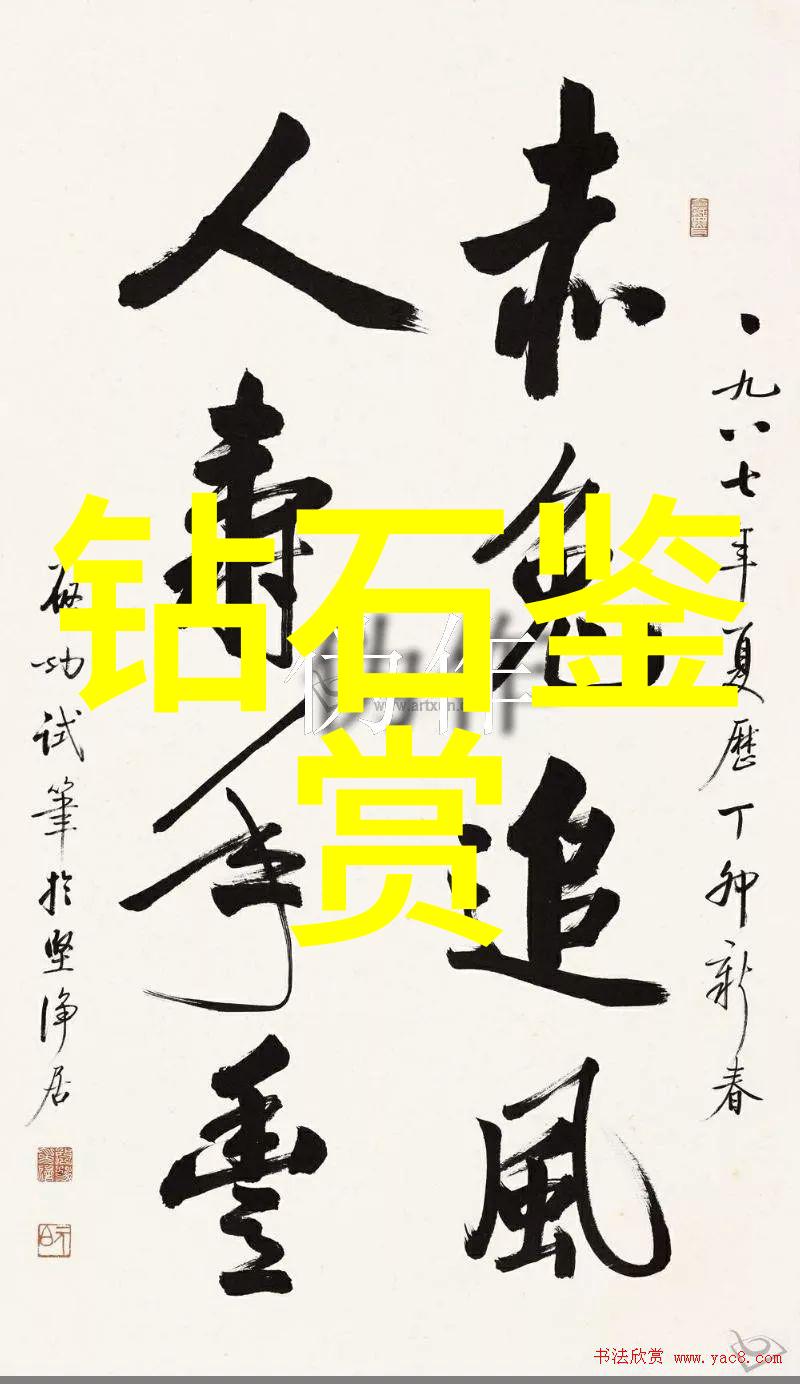 一九八七年夏历丁卯新春
赤兔追風
人壽年豐
啟功试筆於坚净居
钻石鉴
赏
伪作
www.artxun.cn
书法欣赏 www.yac8.com